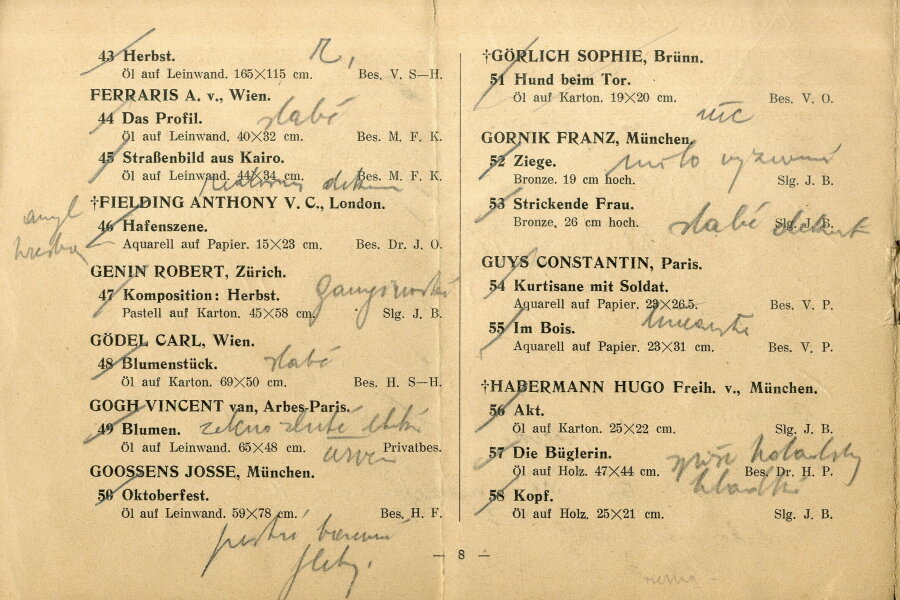 43 Herbst.
Öl auf Leinwand. 165×115 cm. Bes. V. S—H.
FERRARIS A. v., Wien.
slabé
44 Das Profil.
Öl auf Leinwand. 40×32 cm. Bes. M. F. K.
45 Straßenbild aus Kairo.
Öl auf Leinwand. 44×34 cm. Bes. M. F. K.
†FIELDING ANTHONY V. C., London.
46 Hafenszene.
Aquarell auf Papier. 15×23 cm. Bes. Dr. J. O.
GENIN ROBERT, Zürich.
47 Komposition: Herbst.
Pastell auf Karton. 45×58 cm. Slg. J. B.
GÖDEL CARL, Wien.
48 Blumenstück. slabé
Öl auf Karton. 69×50 cm. Bes. H. S—H.
GOGH VINCENT van, Arbes-Paris.
49 Blumen. zeleno žluté
Öl auf Leinwand. 65×48 cm. Privatbes.
GOOSSENS JOSSE, München.
50 Oktoberfest.
Öl auf Leinwand. 59×78 cm. Bes. H. F.
pestré barevné
fleky.
†GÖRLICH SOPHIE, Brünn.
51 Hund beim Tor.
Öl auf Karton. 19×20 cm. Bes. V. O.
nic
GORNIK FRANZ, München.
52 Ziege.
Bronze. 19 cm hoch. Slg. J. B.
53 Strickende Frau.
Bronze. 26 cm hoch. Slg. J. B.
slabé
GUYS CONSTANTIN, Paris.
54 Kurtisane mit Soldat.
Aquarell auf Papier. 29×26.5. Bes. V. P.
55 Im Bois.
Aquarell auf Papier. 23×31 cm. Bes. V. P.
†HABERMANN HUGO Freih. v., München.
56 Akt.
Öl auf Karton. 25×22 cm. Slg. J. B.
57 Die Büglerin.
Öl auf Holz. 47×44 cm. Bes. Dr. H. P.
58 Kopf.
Öl auf Holz. 25×21 cm. Slg. J. B.
— 8 —